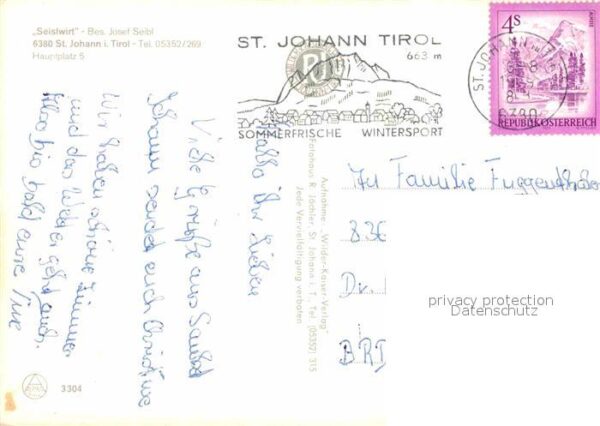 „Seislwirt“ - Bes. Josef Seibl
6380 St. Johann i. Tirol - Tel. 05352/269
Hauptplatz 5
ST. JOHANN TIROL
663 m
SOMMERFRISCHE WINTERSPORT
4s
REPUBLIK ÖSTERREICH
ST. JOHANN
6380
Hallo ihr Lieben
Viele Grüße aus Sankt
Johann sendet euch Christine
Wir haben schöne Zimmer
und das Wetter geht auch.
Also bis bald eure Tine
Aufnahme: „Wilder-Kaiser-Verlag“
Fotohaus R. Jöchler, St. Johann i. T., Tel. (05352) 315
Jede Vervielfältigung verboten
An Familie
836
Dr.
BRD
privacy protection
Datenschutz
3304